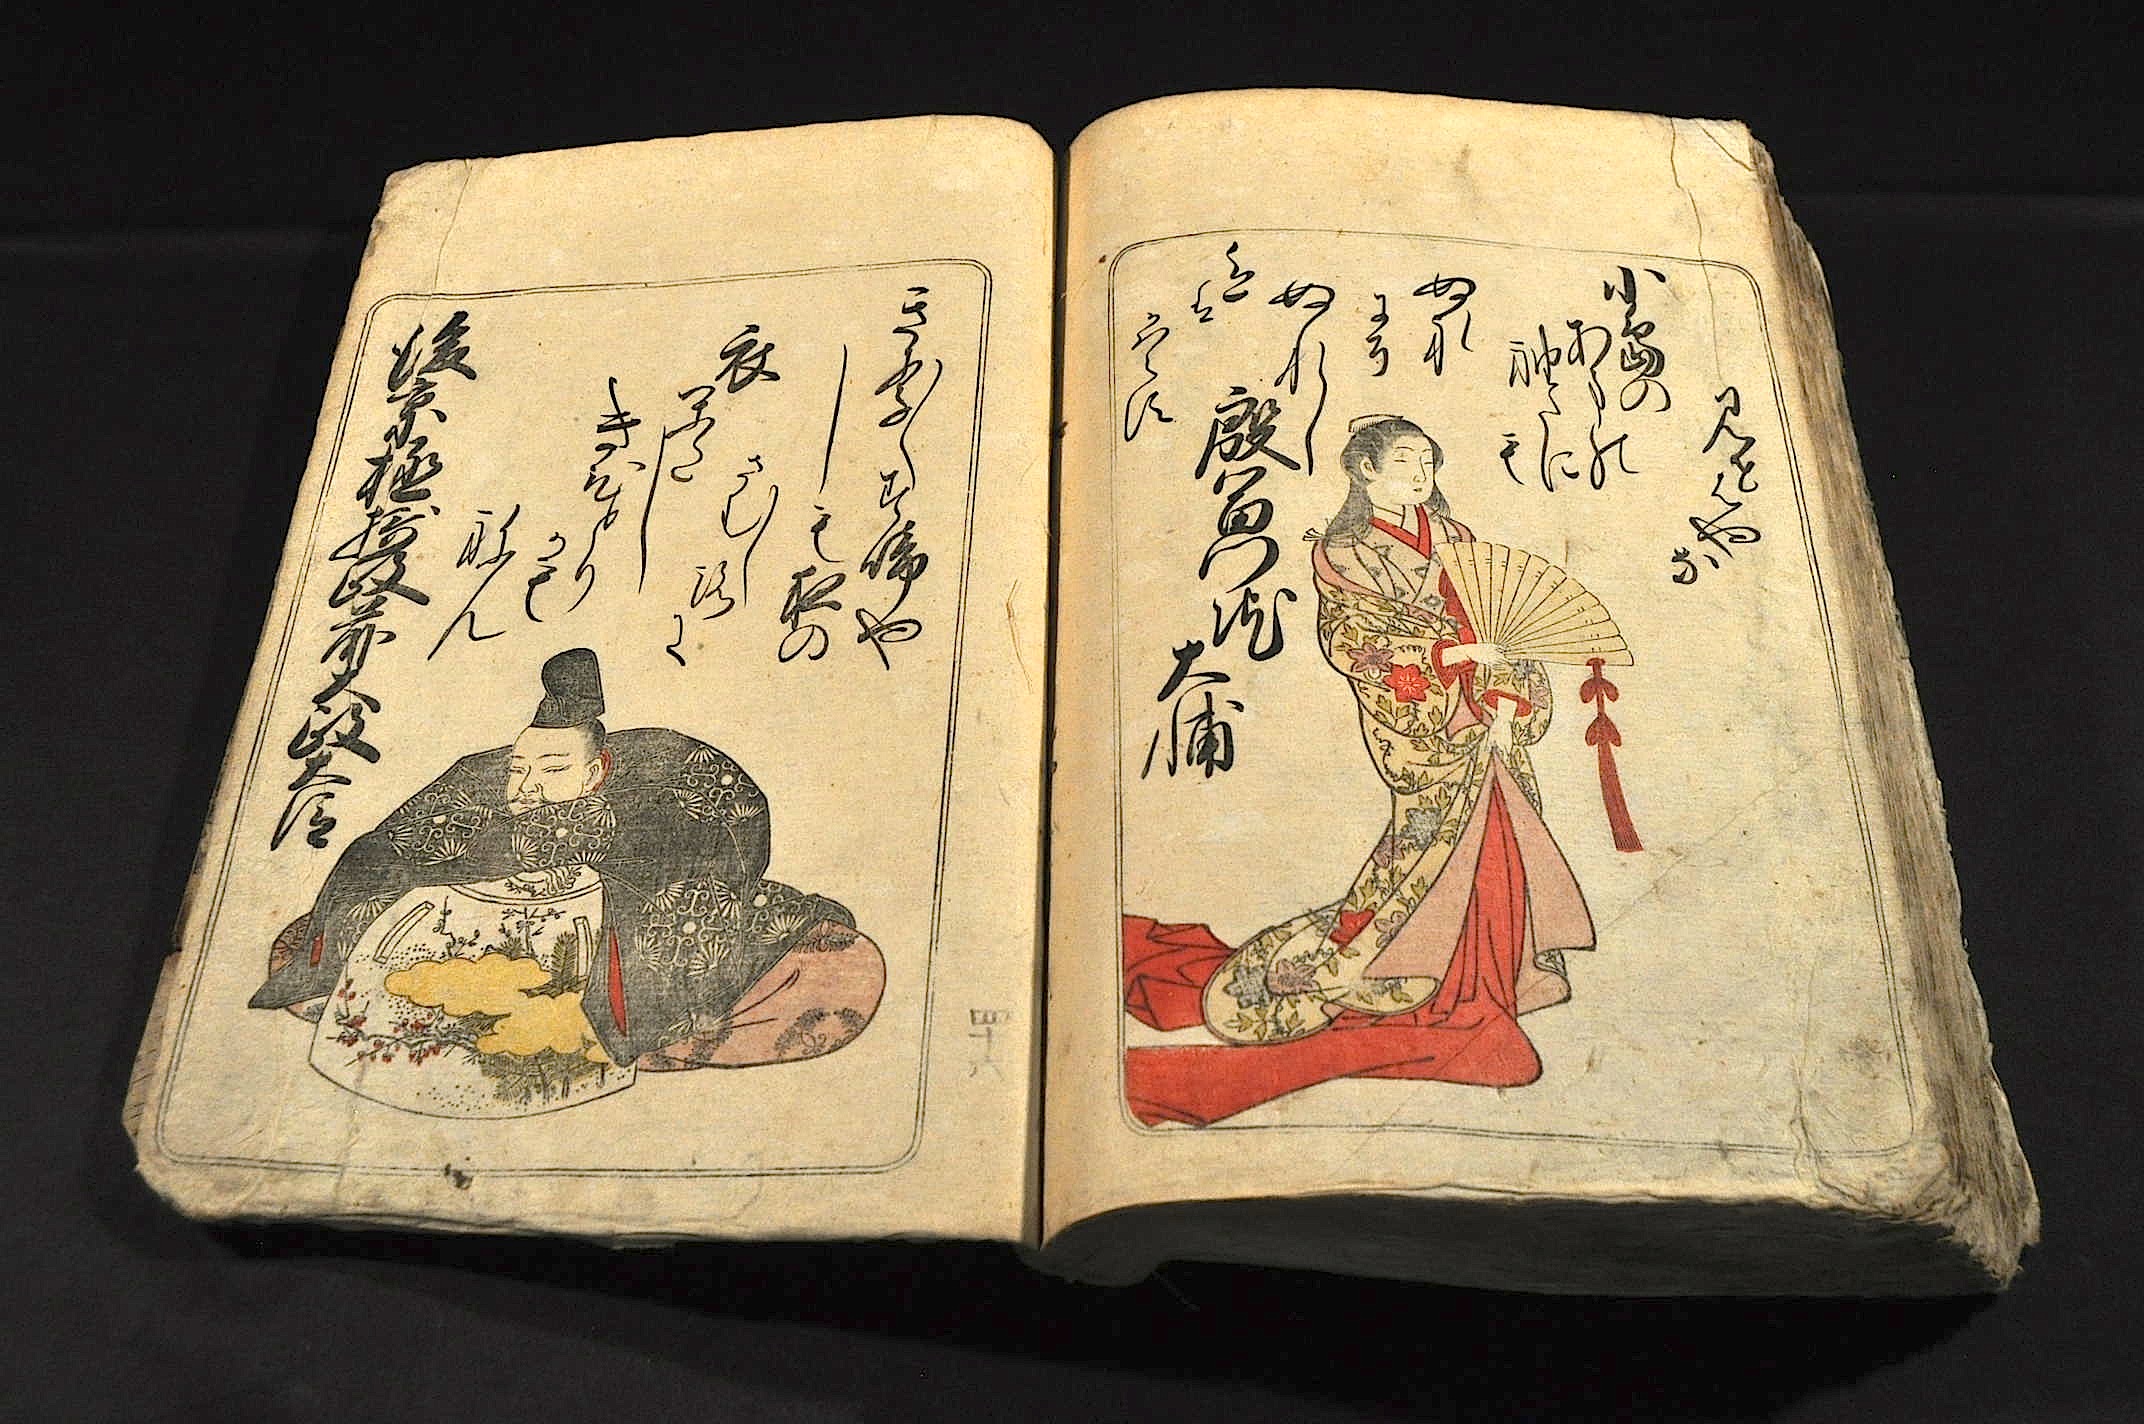 見せはや
な
小島の
あまの
袖たに
も
ぬれ
にそ
ぬれし
色
は
かはらす
殷冨門院
大輔
きり〱す鳴や
しも夜の
さむしろに
衣かたし
きひとり
かも
ねん
後京極摂政前太政大臣
四十六